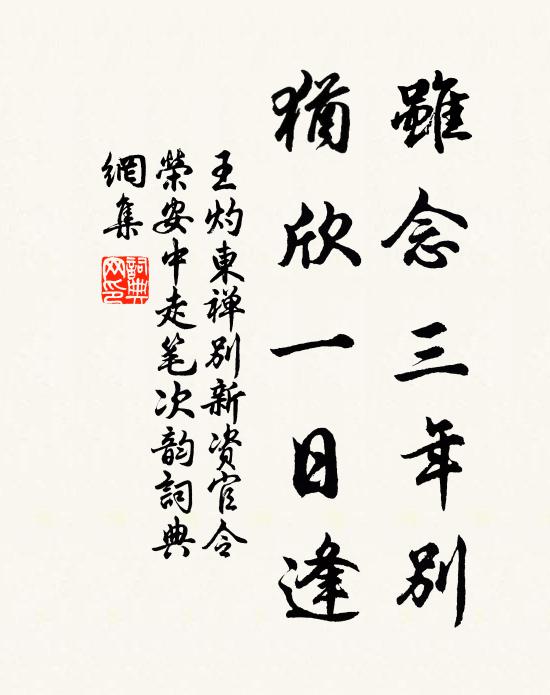 雖念三年別
猶欣一日逢
王灼東禅別新資官令
榮安中走笔次韵詞典
網集
詞典
网印